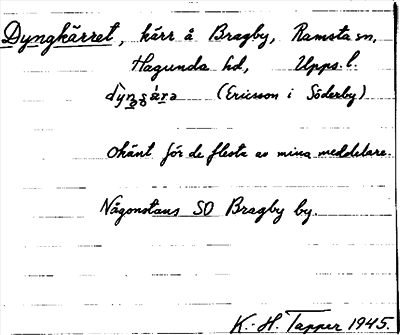 Dyngkärret, kärr å Bragby, Ramsta sn,
Hagunda hd, Upps. l.
(Ericsson i Söderby)
Okänt för de flesta av mina meddelare.
Någonstans SO Bragby by.
K.-H. Tapper 1945.